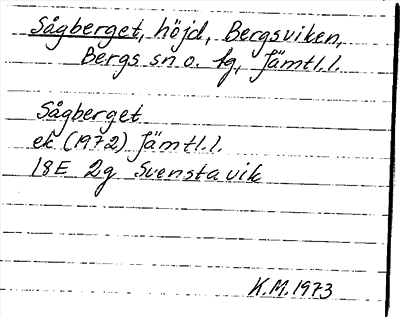 Sågberget, höjd, Bergsviken,
Bergs sn o. kg, Jämtl.l.
Sågberget
ek (1972) Jämtl.l.
18E 2g Svenstavik
K.M.1973